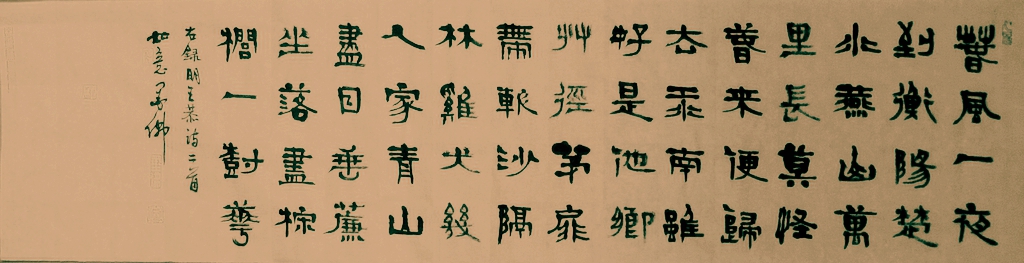 春風一夜
到衡陽楚
水燕山萬
里長莫怪
春來便歸
去江南雖
好是他鄉
艸徑茅扉
帶軟沙隔
林雞犬幾
人家青山
盡日垂簾
坐落盡棕
櫚一尌華
右錄明王恭詩二首
如意